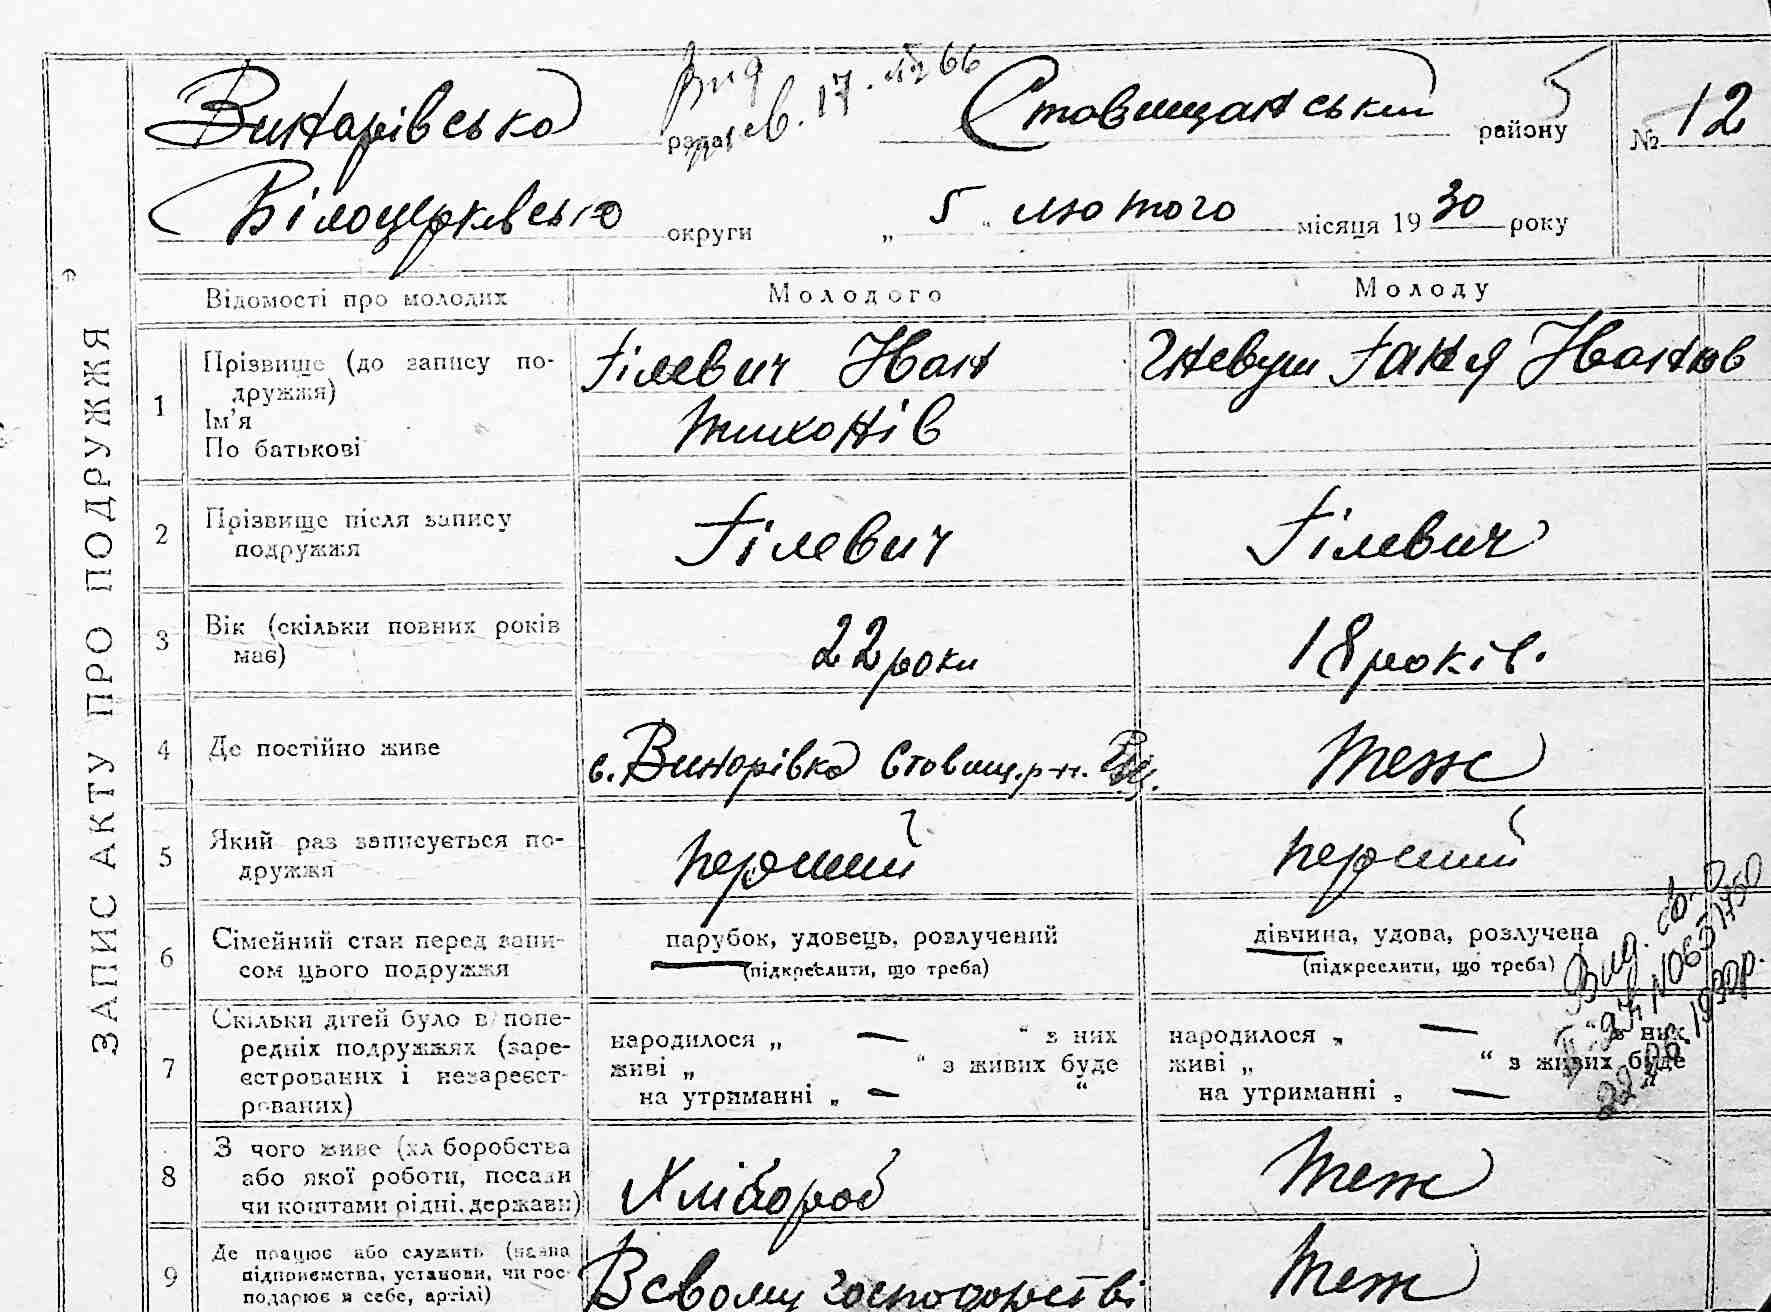 Винарівсько ради Ставищанський району № 12
Вид
св. 17.
5
Білоцерківсько округи „ 5 " лютого місяця 19 30 року
ЗАПИС АКТУ ПРО ПОДРУЖЖЯ
Відомості про молодих Молодого Молоду
1 Прізвище (до запису по-
дружжя)
Ім'я
По батькові
Гілевич Іван
Тихонів
Гневуш Ганя Іванів
2 Прізвище після запису
подружжя
Гілевич
Гілевич
3 Вік (скільки повних років
має)
22 роки
18 років.
4 Де постійно живе
с. Винарівка Ставищ. р-н.
Теж
5 Який раз записується по-
дружжя
перший
перший
6 Сімейний стан перед запи-
сом цього подружжя
парубок, удовець, розлучений
(підкреслити, що треба)
дівчина, удова, розлучена
(підкреслити, що треба)
7 Скільки дітей було в попе-
редніх подружжях (заре-
єстрованих і незареєст-
рованих)
народилося „ — “ з них
живі „ “ з живих буде
на утриманні „ — “
народилося „ — з них
живі „ “ з живих буде
на утриманні „ —
Вид.
8 З чого живе (хліборобства
або якої роботи, посади
чи коштами рідні, держави)
Хлібороб
Теж
9 Де працює або служить (назва
підприємства, установи, чи гос-
подарює я себе, артілі)
В свому господарстві
Теж